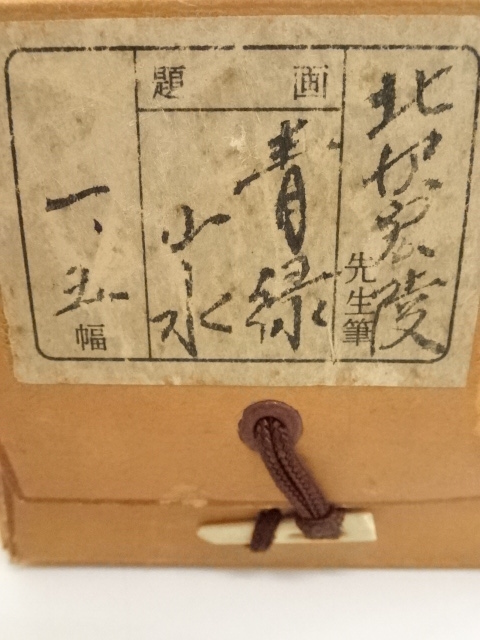 北宏陵
先生筆
画題
青緑
山水
一、五幅